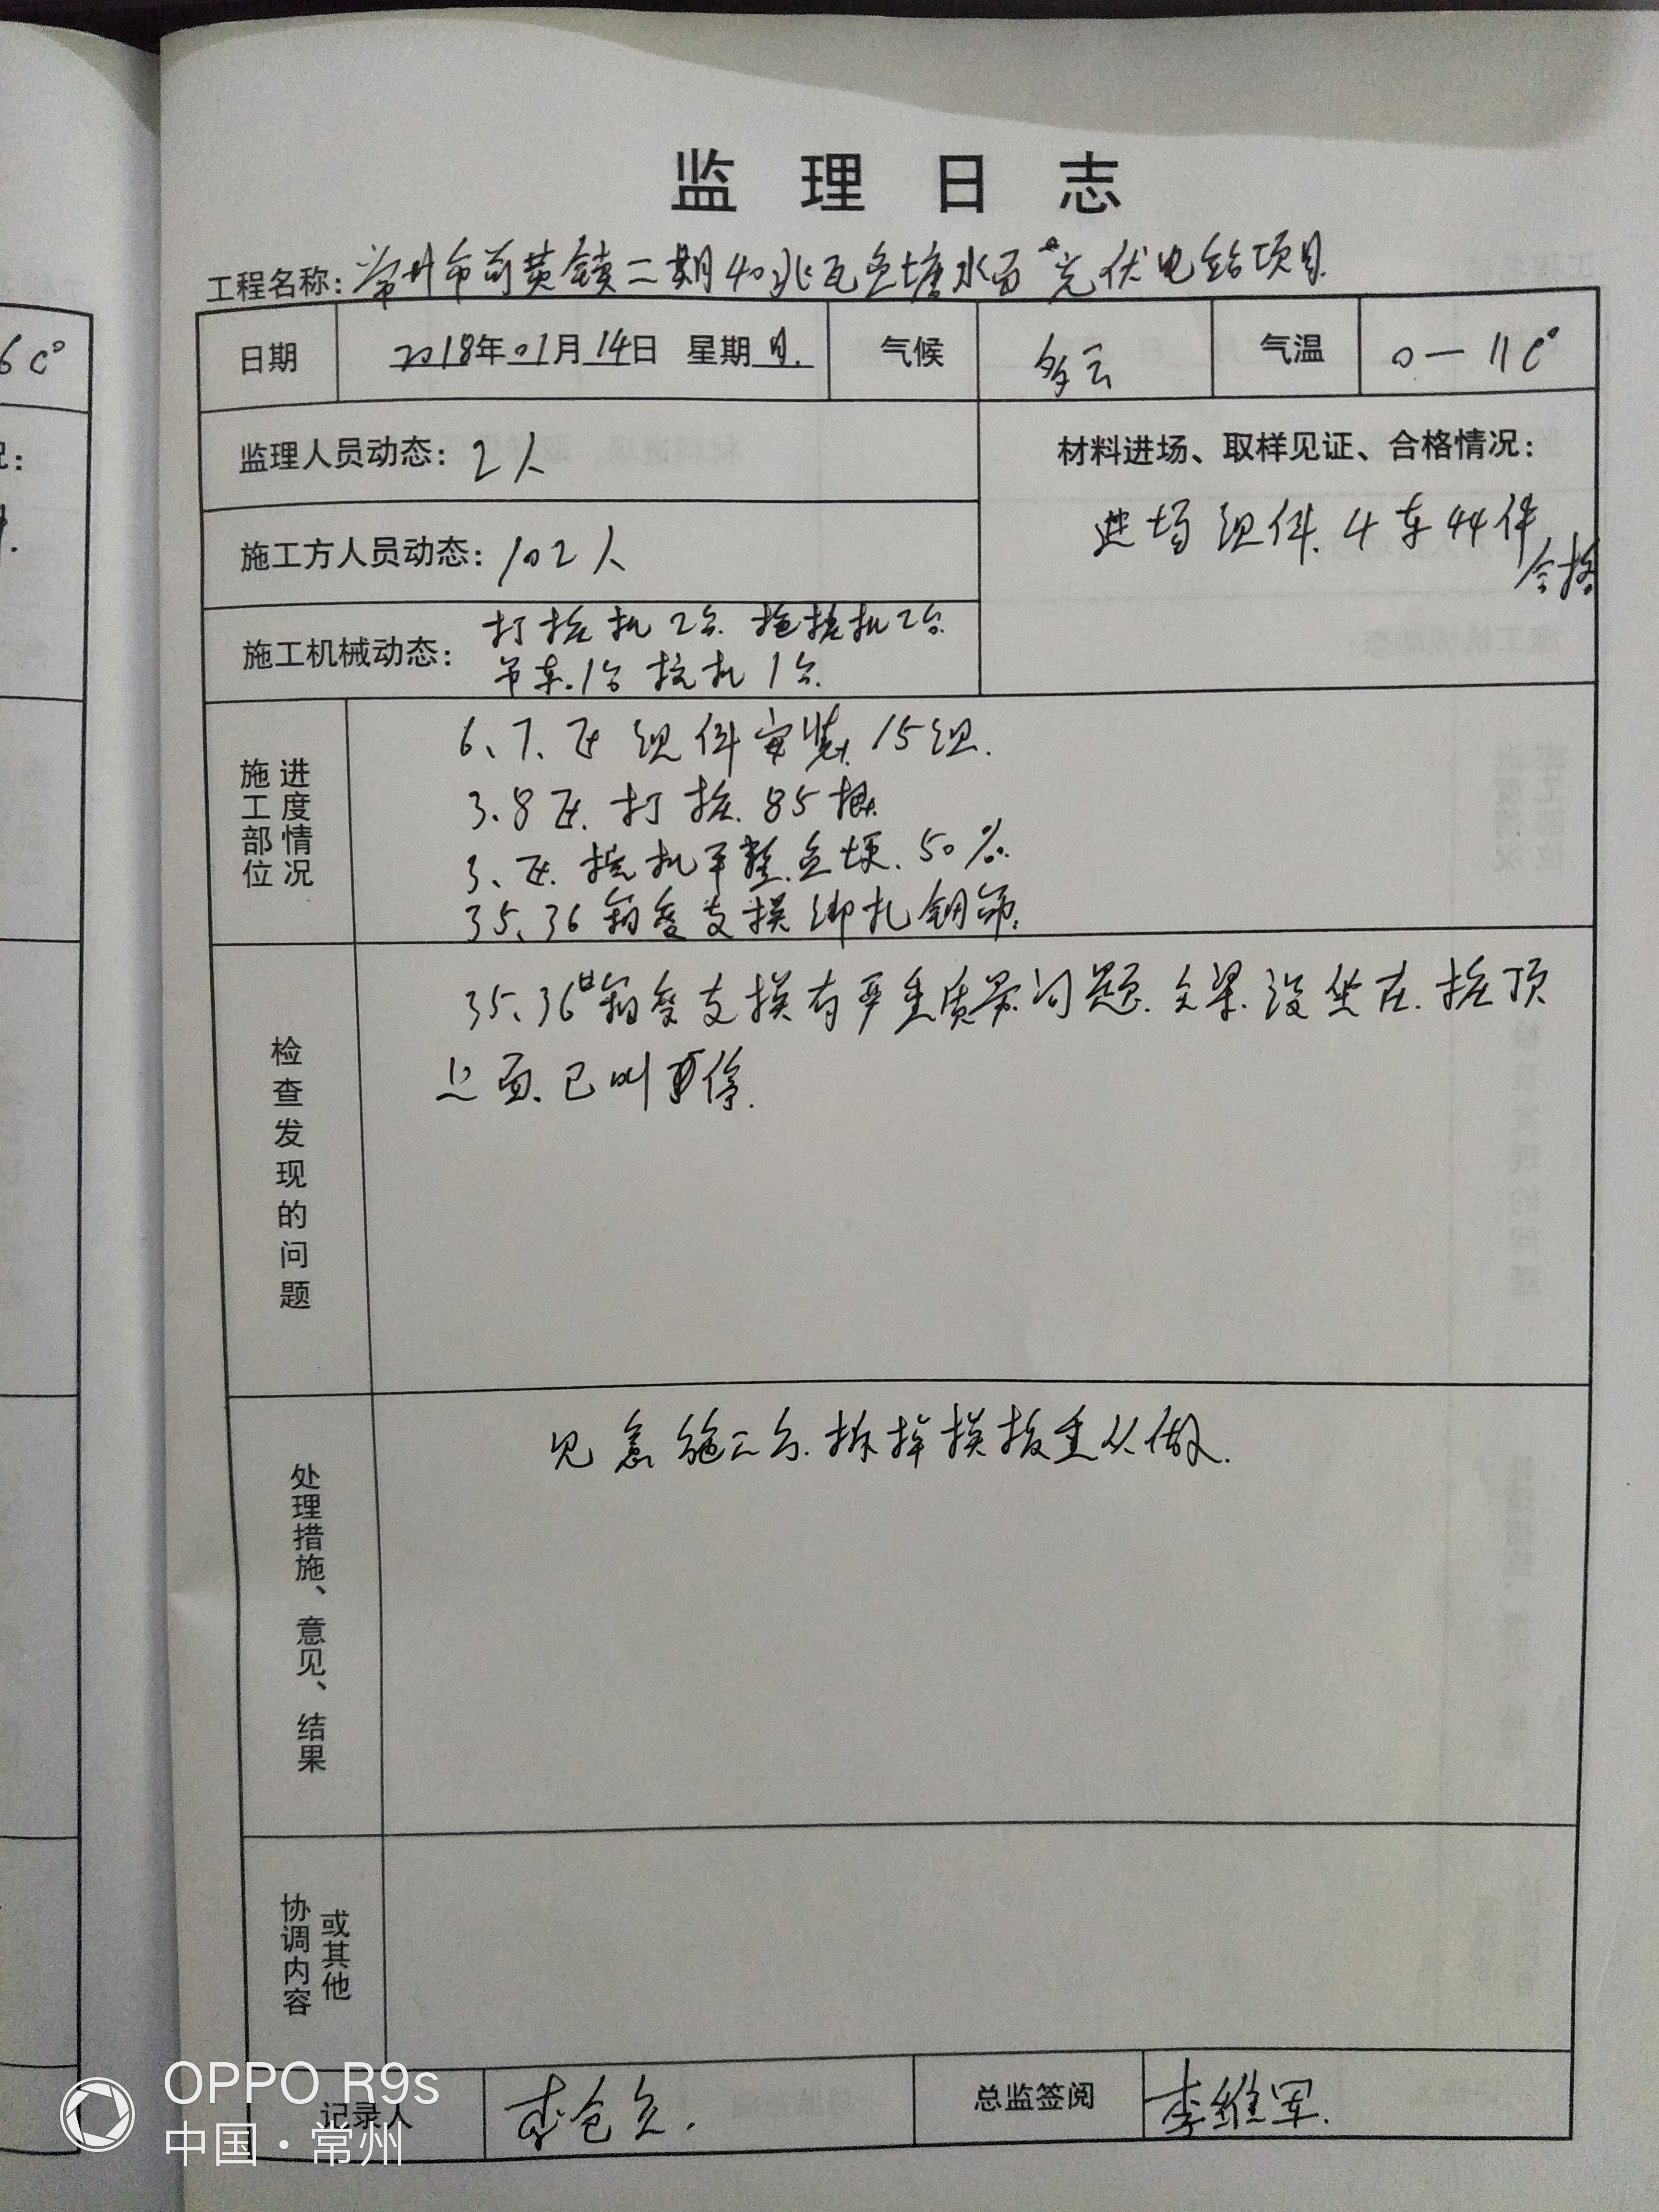 监理日志
工程名称：常州市前黄镇二期40兆瓦鱼塘水面光伏电站项目
6C°
日期 2018年01月14日 星期日. 气候 多云 气温 0—11C°
监理人员动态：2人
材料进场、取样见证、合格情况：
进场组件.4车44件
合格
施工方人员动态：102人
施工机械动态：打桩机2台.拖桩机2台
吊车.1台 挖机1台.
施工部位 进度情况
6、7、区组件安装.15组.
3.8区.打桩.85根.
3、区.挖机平整.鱼埂.50%.
35、36箱变支模绑扎钢筋.
检查发现的问题
35、36#箱变支模有严重质量问题.文梁.没坐在.桩顶
上面.已叫暂停.
处理措施、意见、结果
施工方.拆掉模板重从做.
协调内容 或其他
记录人 李 总监签阅 李维军.
OPPO R9s
中国·常州